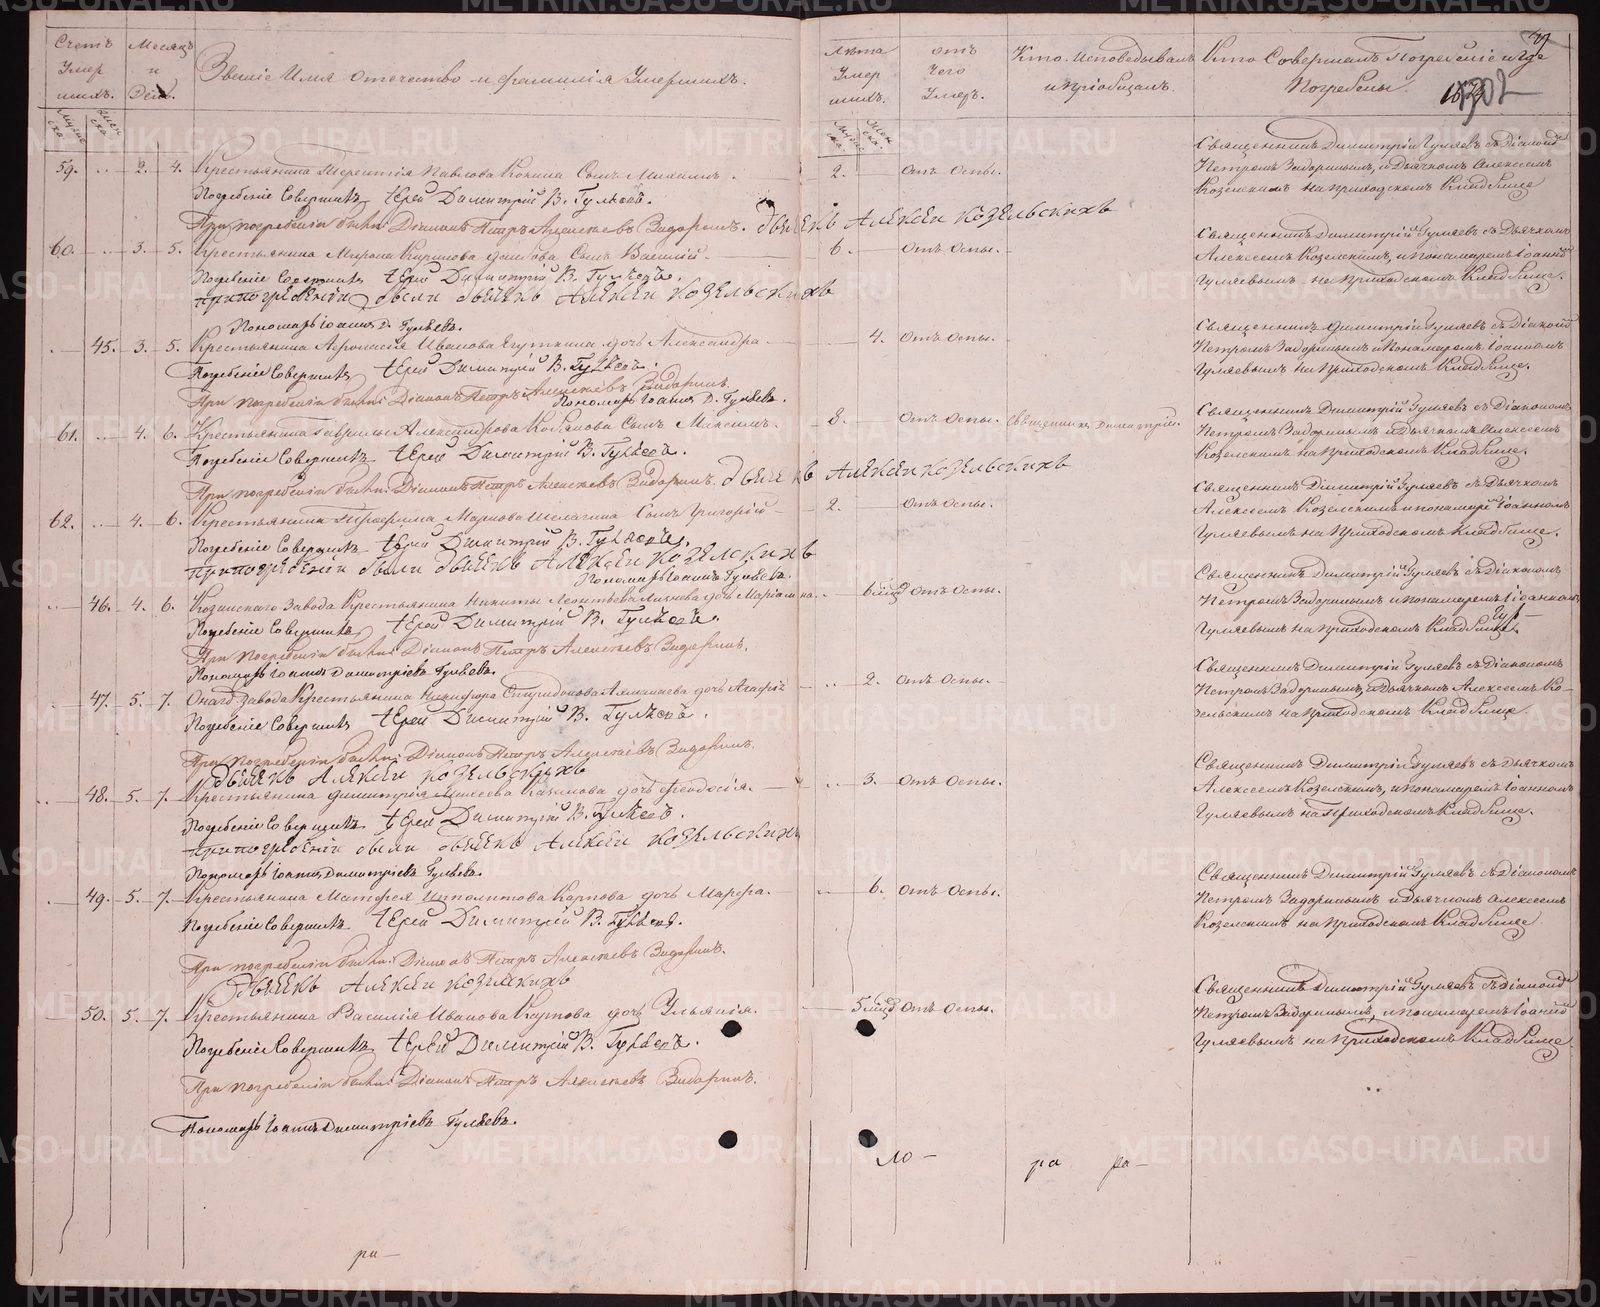 Счетъ Умершихъ.
Месяцъ и День.
Званіе Имя отечество и фамилія Умершихъ.
Лѣта Умершихъ.
отъ чего Умеръ.
Кто исповедывалъ и пріобщалъ.
Кто Совершалъ Погребеніе и где Погребены.
59. 2. 4. Крестьянина Терентія Павлова Сынъ Михаилъ. 2. отъ Оспы.
Священникъ Димитрій Гуляевъ съ Діакономъ
Петромъ Задоринымъ, и Дьячкомъ Алексеемъ
Козелскимъ на приходскомъ Кладбище
Погребеніе Совершилъ Іерей Димитрій В. Гуляевъ.
При погребеніи были: Діаконъ Петръ Алексеевъ Задоринъ. дьячекъ Алексеи Козельскихъ
60. 3. 5. Крестьянина Мирона Кирилова Сынъ Василій. 6. отъ Оспы.
Священникъ Димитрій Гуляевъ съ Дьячкомъ
Алексеемъ Козелскимъ, и пономаремъ Іоанномъ
Гуляевымъ на приходскомъ Кладбище.
Погребеніе Совершилъ Іерей Димитрій В. Гуляевъ.
припогребении были дьячекъ Алексеи Козельскихъ
Пономарь Іоаннъ Д. Гуляевъ.
45. 3. 5. Крестьянина Афонасія Иванова Ягуткина дочь Александра 4. отъ Оспы.
Священникъ Димитрій Гуляевъ съ Діакономъ
Петромъ Задоринымъ и Пономаремъ Іоанномъ
Гуляевымъ на Приходскомъ Кладбище.
Погребеніе Совершилъ Іерей Димитрій В. Гуляевъ.
При погребеніи были: Діаконъ Петръ Алексеевъ Задоринъ.
Пономарь Іоаннъ Д. Гуляевъ.
61. 4. 6. Крестьянина Гаврилы Александрова Сынъ Максимъ. 8. отъ Оспы. Священникъ Димитрій.
Священникъ Димитрій Гуляевъ съ Діакономъ
Петромъ Задоринымъ и Дьячкомъ Алексеемъ
Козелскимъ на Приходскомъ Кладбище.
Погребеніе Совершилъ Іерей Димитрій В. Гуляевъ.
При погребеніи были: Діаконъ Петръ Алексеевъ Задоринъ. дьячекъ Алексеи Козельскихъ
62. 4. 6. Крестьянина Трофима Маркова Шелагина Сынъ Григорій 2. отъ Оспы.
Священникъ Димитрій Гуляевъ съ Дьячкомъ
Алексеемъ Козелскимъ и пономаремъ Іоанномъ
Гуляевымъ на Приходскомъ Кладбище.
Погребеніе Совершилъ Іерей Димитрій В. Гуляевъ.
припогребении были дьячекъ Алексеи Козелскихъ
Пономарь Іоаннъ Гуляевъ.
46. 4. 6. Козинскаго Завода Крестьянина Никиты Леонтьева дочь Маріамна. 6. отъ Оспы.
Священникъ Димитрій Гуляевъ съ Діакономъ
Петромъ Задоринымъ и Пономаремъ Іоанномъ
Гуляевымъ на приходскомъ Кладбище.
Погребеніе Совершилъ Іерей Димитрій В. Гуляевъ.
При погребеніи были: Діаконъ Петръ Алексеевъ Задоринъ.
Пономарь Іоаннъ Димитріевъ Гуляевъ.
47. 5. 7. Онаго Завода Крестьянина Никифора Спиридонова дочь Агафія 2. отъ Оспы.
Священникъ Димитрій Гуляевъ съ Діакономъ
Петромъ Задоринымъ, и Дьячкомъ Алексеемъ Ко-
зельскимъ на Приходскомъ Кладбище.
Погребеніе Совершилъ Іерей Димитрій В. Гуляевъ.
При погребеніи были: Діаконъ Петръ Алексеевъ Задоринъ.
дьячекъ Алексеи Козельскихъ
48. 5. 7. Крестьянина Димитрія дочь Феодосія. 3. отъ Оспы.
Священникъ Димитрій Гуляевъ съ Дьячкомъ
Алексеемъ Козелскимъ, и пономаремъ Іоанномъ
Гуляевымъ на Приходскомъ Кладбище.
Погребеніе Совершилъ Іерей Димитрій В. Гуляевъ.
припогребении были дьячекъ Алексеи Козельскихъ
Пономарь Іоаннъ Димитріевъ Гуляевъ.
49. 5. 7. Крестьянина Матфея Ипполитова Карпова дочь Марфа. 6. отъ Оспы.
Священникъ Димитрій Гуляевъ съ Діакономъ
Петромъ Задоринымъ и Дьячкомъ Алексеемъ
Козелскимъ на приходскомъ Кладбище
Погребеніе Совершилъ Іерей Димитрій В. Гуляевъ.
При погребеніи были: Діаконъ Петръ Алексеевъ Задоринъ.
дьячекъ Алексеи Козелскихъ
50. 5. 7. Крестьянина Василія Иванова дочь Ульянія. 5 отъ Оспы.
Священникъ Димитрій Гуляевъ съ Діакономъ
Петромъ Задоринымъ, и пономаремъ Іоанномъ
Гуляевымъ на Приходскомъ Кладбище.
Погребеніе Совершилъ Іерей Димитрій В. Гуляевъ.
При погребеніи были: Діаконъ Петръ Алексеевъ Задоринъ.
Пономарь Іоаннъ Димитріевъ Гуляевъ.
ло- ра ра-
ра-
METRIKI.GASO-URAL.RU